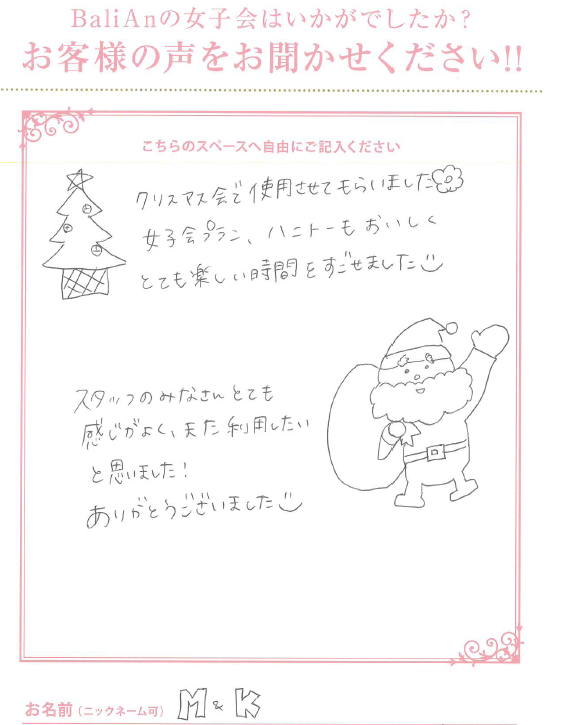 BaliAnの女子会はいかがでしたか？
お客様の声をお聞かせください!!
こちらのスペースへ自由にご記入ください
クリスマス会で使用させてもらいました
女子会プラン、ハニトーもおいしく
とても楽しい時間をすごせました
スタッフのみなさんとても
感じがよく、また利用したい
と思いました!
ありがとうございました
お名前（ニックネーム可） M & K